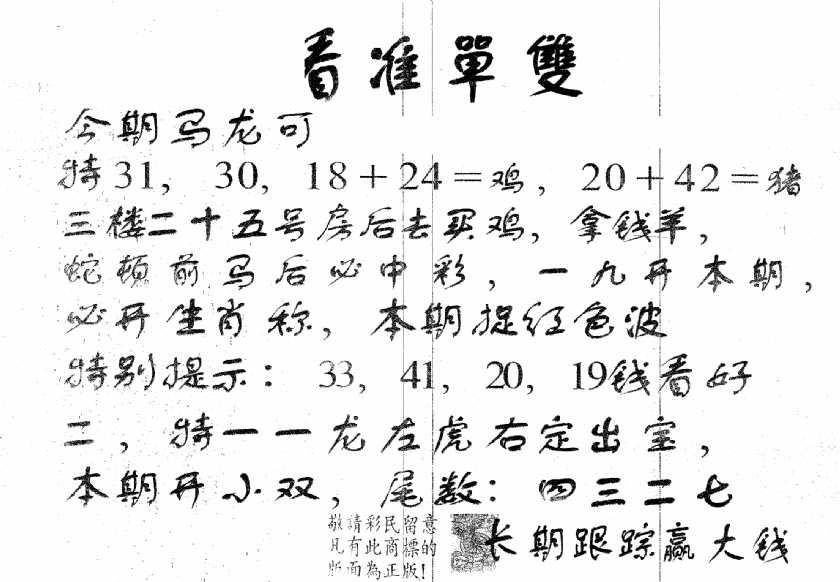 看准單雙
今期马龙可
特31, 30, 18+24=鸡, 20+42=猪
三楼二十五号房后去买鸡, 拿钱羊,
蛇頓前马后必中彩, 一九开本期,
必开生肖称, 本期捉红色波
特别提示: 33, 41, 20, 19钱看好
二, 特一一龙左虎右定出宝,
本期开小双, 尾数: 四三二七
敬請彩民留意
凡有此商標的
版面為正版!
长期跟踪赢大钱